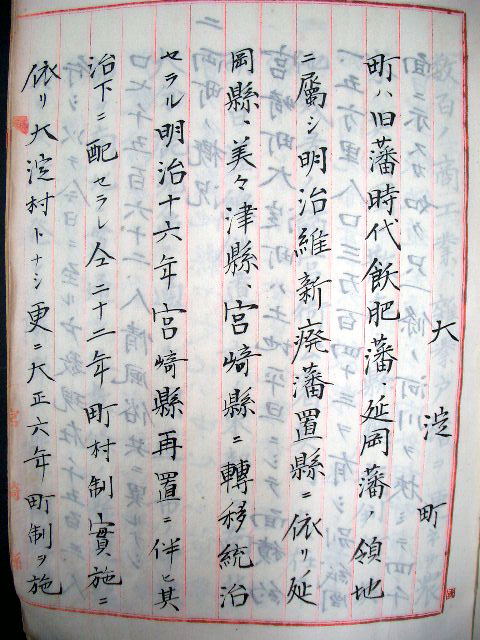 大淀町
町ハ旧藩時代飫肥藩、延岡藩ノ領地
ニ屬シ明治維新廃藩置縣ニ依リ延
岡縣、美々津縣、宮崎縣ニ轉移統治
セラル明治十六年宮崎縣再置ニ伴ヒ其
治下ニ配セラレ仝二十二年町村制實施ニ
依リ大淀村トナシ更ニ大正六年町制ヲ施